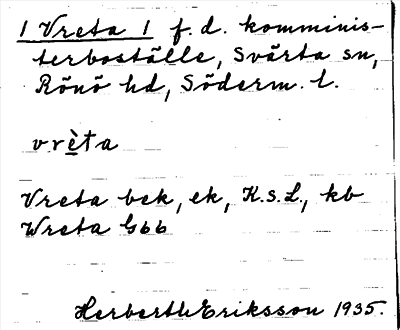 1 Vreta 1 f. d. komminis-
terboställe, Svärta sn,
Rönö hd, Söderm. l.
vrèta
Vreta bek, ek, K.s.L., kb
Wreta G66
Herberth Eriksson 1935.